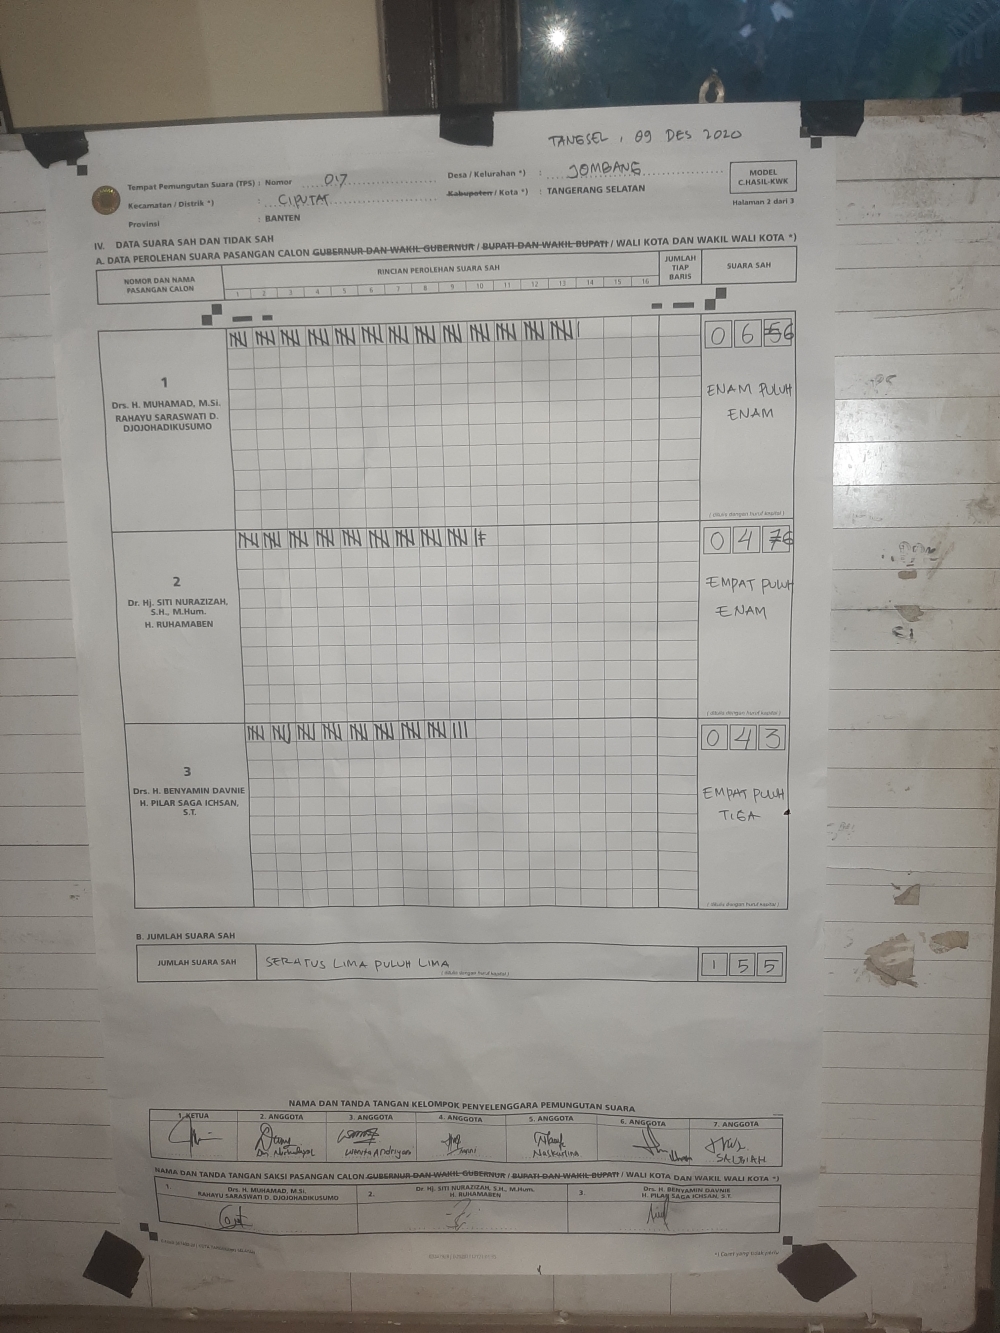 TANGSEL, 09 DES 2020
Tempat Pemungutan Suara (TPS) : Nomor 017
Desa / Kelurahan *) : JOMBANG
MODEL
C.HASIL-KWK
Kecamatan / Distrik *) : CIPUTAT
Kabupaten / Kota *) : TANGERANG SELATAN
Halaman 2 dari 3
Provinsi : BANTEN
IV. DATA SUARA SAH DAN TIDAK SAH
A. DATA PEROLEHAN SUARA PASANGAN CALON GUBERNUR DAN WAKIL GUBERNUR / BUPATI DAN WAKIL BUPATI / WALI KOTA DAN WAKIL WALI KOTA *)
NOMOR DAN NAMA
PASANGAN CALON
RINCIAN PEROLEHAN SUARA SAH
JUMLAH
TIAP
BARIS
SUARA SAH
1 2 3 4 5 6 7 8 9 10 11 12 13 14 15 16
1
Drs. H. MUHAMAD, M.Si.
RAHAYU SARASWATI D.
DJOJOHADIKUSUMO
0 6 6
ENAM PULUH
ENAM
( ditulis dengan huruf kapital )
2
Dr. Hj. SITI NURAZIZAH,
S.H., M.Hum.
H. RUHAMABEN
0 4 6
EMPAT PULUH
ENAM
( ditulis dengan huruf kapital )
3
Drs. H. BENYAMIN DAVNIE
H. PILAR SAGA ICHSAN,
S.T.
0 4 3
EMPAT PULUH
TIGA
( ditulis dengan huruf kapital )
B. JUMLAH SUARA SAH
JUMLAH SUARA SAH
SERATUS LIMA PULUH LIMA
( ditulis dengan huruf kapital )
1 5 5
NAMA DAN TANDA TANGAN KELOMPOK PENYELENGGARA PEMUNGUTAN SUARA
1. KETUA 2. ANGGOTA 3. ANGGOTA 4. ANGGOTA 5. ANGGOTA 6. ANGGOTA 7. ANGGOTA
SALBIAH
NAMA DAN TANDA TANGAN SAKSI PASANGAN CALON GUBERNUR DAN WAKIL GUBERNUR / BUPATI DAN WAKIL BUPATI / WALI KOTA DAN WAKIL WALI KOTA *)
1. Drs. H. MUHAMAD, M.Si.
RAHAYU SARASWATI D. DJOJOHADIKUSUMO
2. Dr. Hj. SITI NURAZIZAH, S.H., M.Hum.
H. RUHAMABEN
3. Drs. H. BENYAMIN DAVNIE
H. PILAR SAGA ICHSAN, S.T.
*) Coret yang tidak perlu